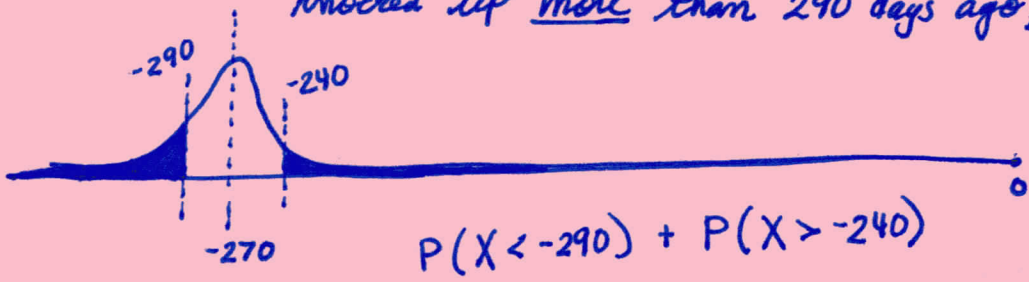 knocked up more than 290 days ago,
-290
-240
0
-270
P(X < -290) + P(X > -240)